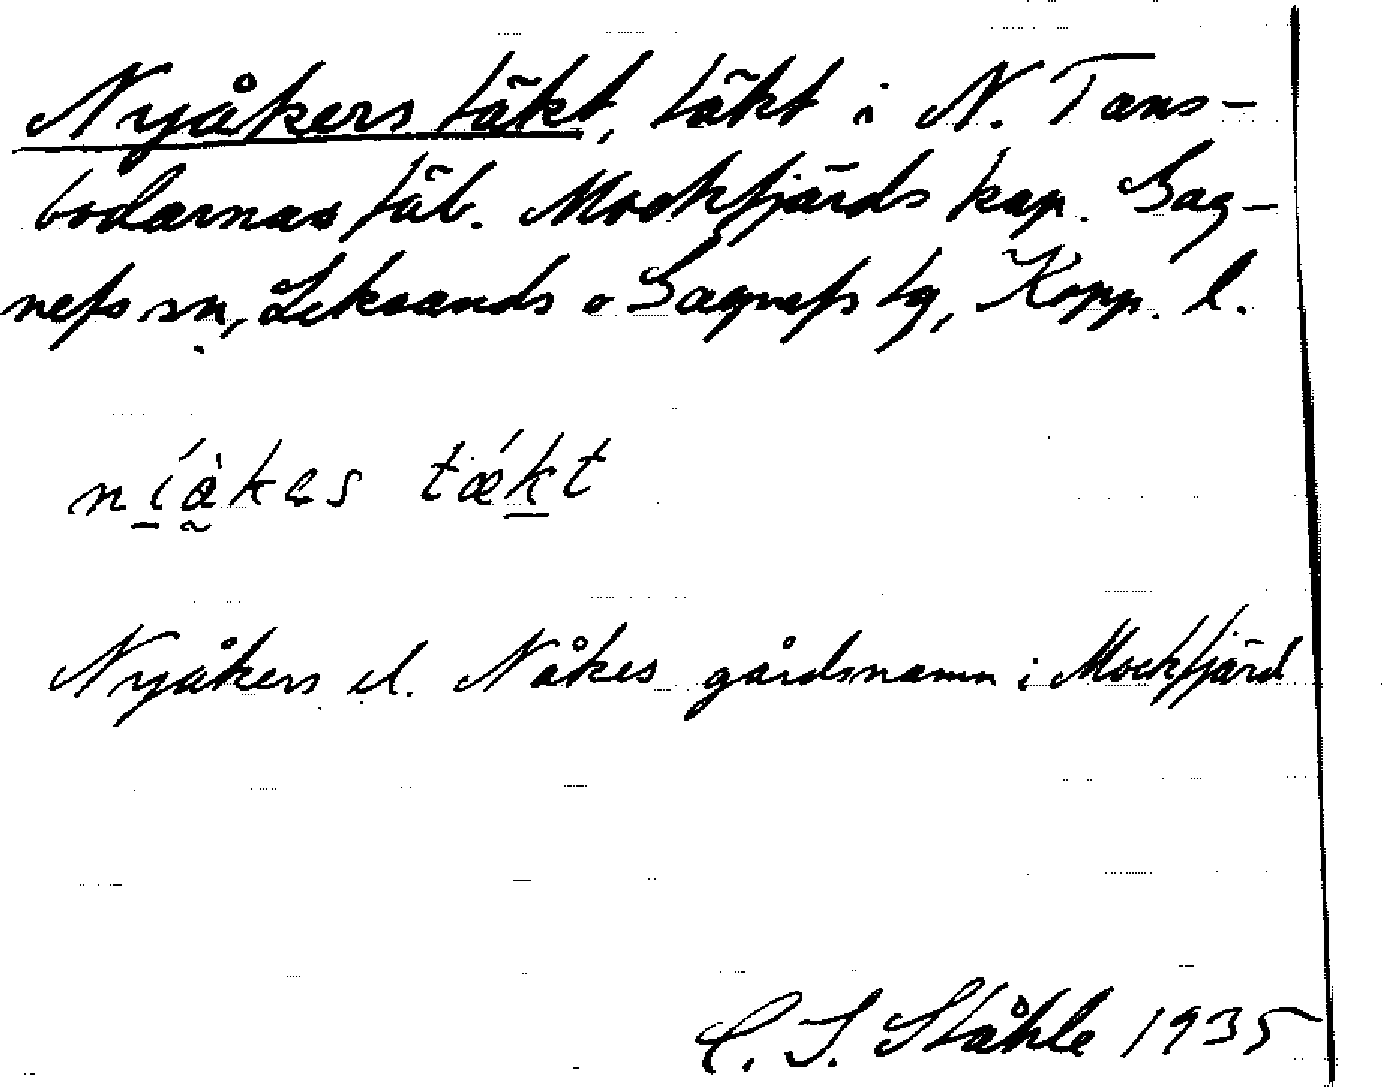 Nyåkers täkt, täkt i N. Tans-
bodarnas fäb. Mockfjärds kap. Gag-
nefs sn, Leksands o Gagnefs tg, Kopp. l.
níàkes tǽkt
Nyåkers el. Nåkes gårdsnamn i Mockfjärd
C. I. Ståhle 1935